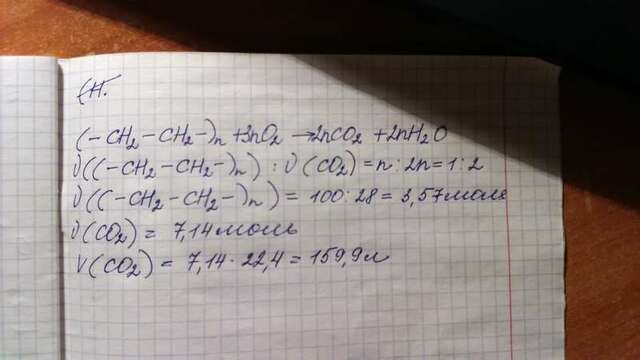 (-CH₂-CH₂-)n + 3nO₂ → 2nCO₂ + 2nH₂O
ν((-CH₂-CH₂-)n) : ν(CO₂) = n : 2n = 1 : 2
ν((-CH₂-CH₂-)n) = 100 : 28 = 3,57 моля
ν(CO₂) = 7,14 моль
V(CO₂) = 7,14 · 22,4 = 159,9 л